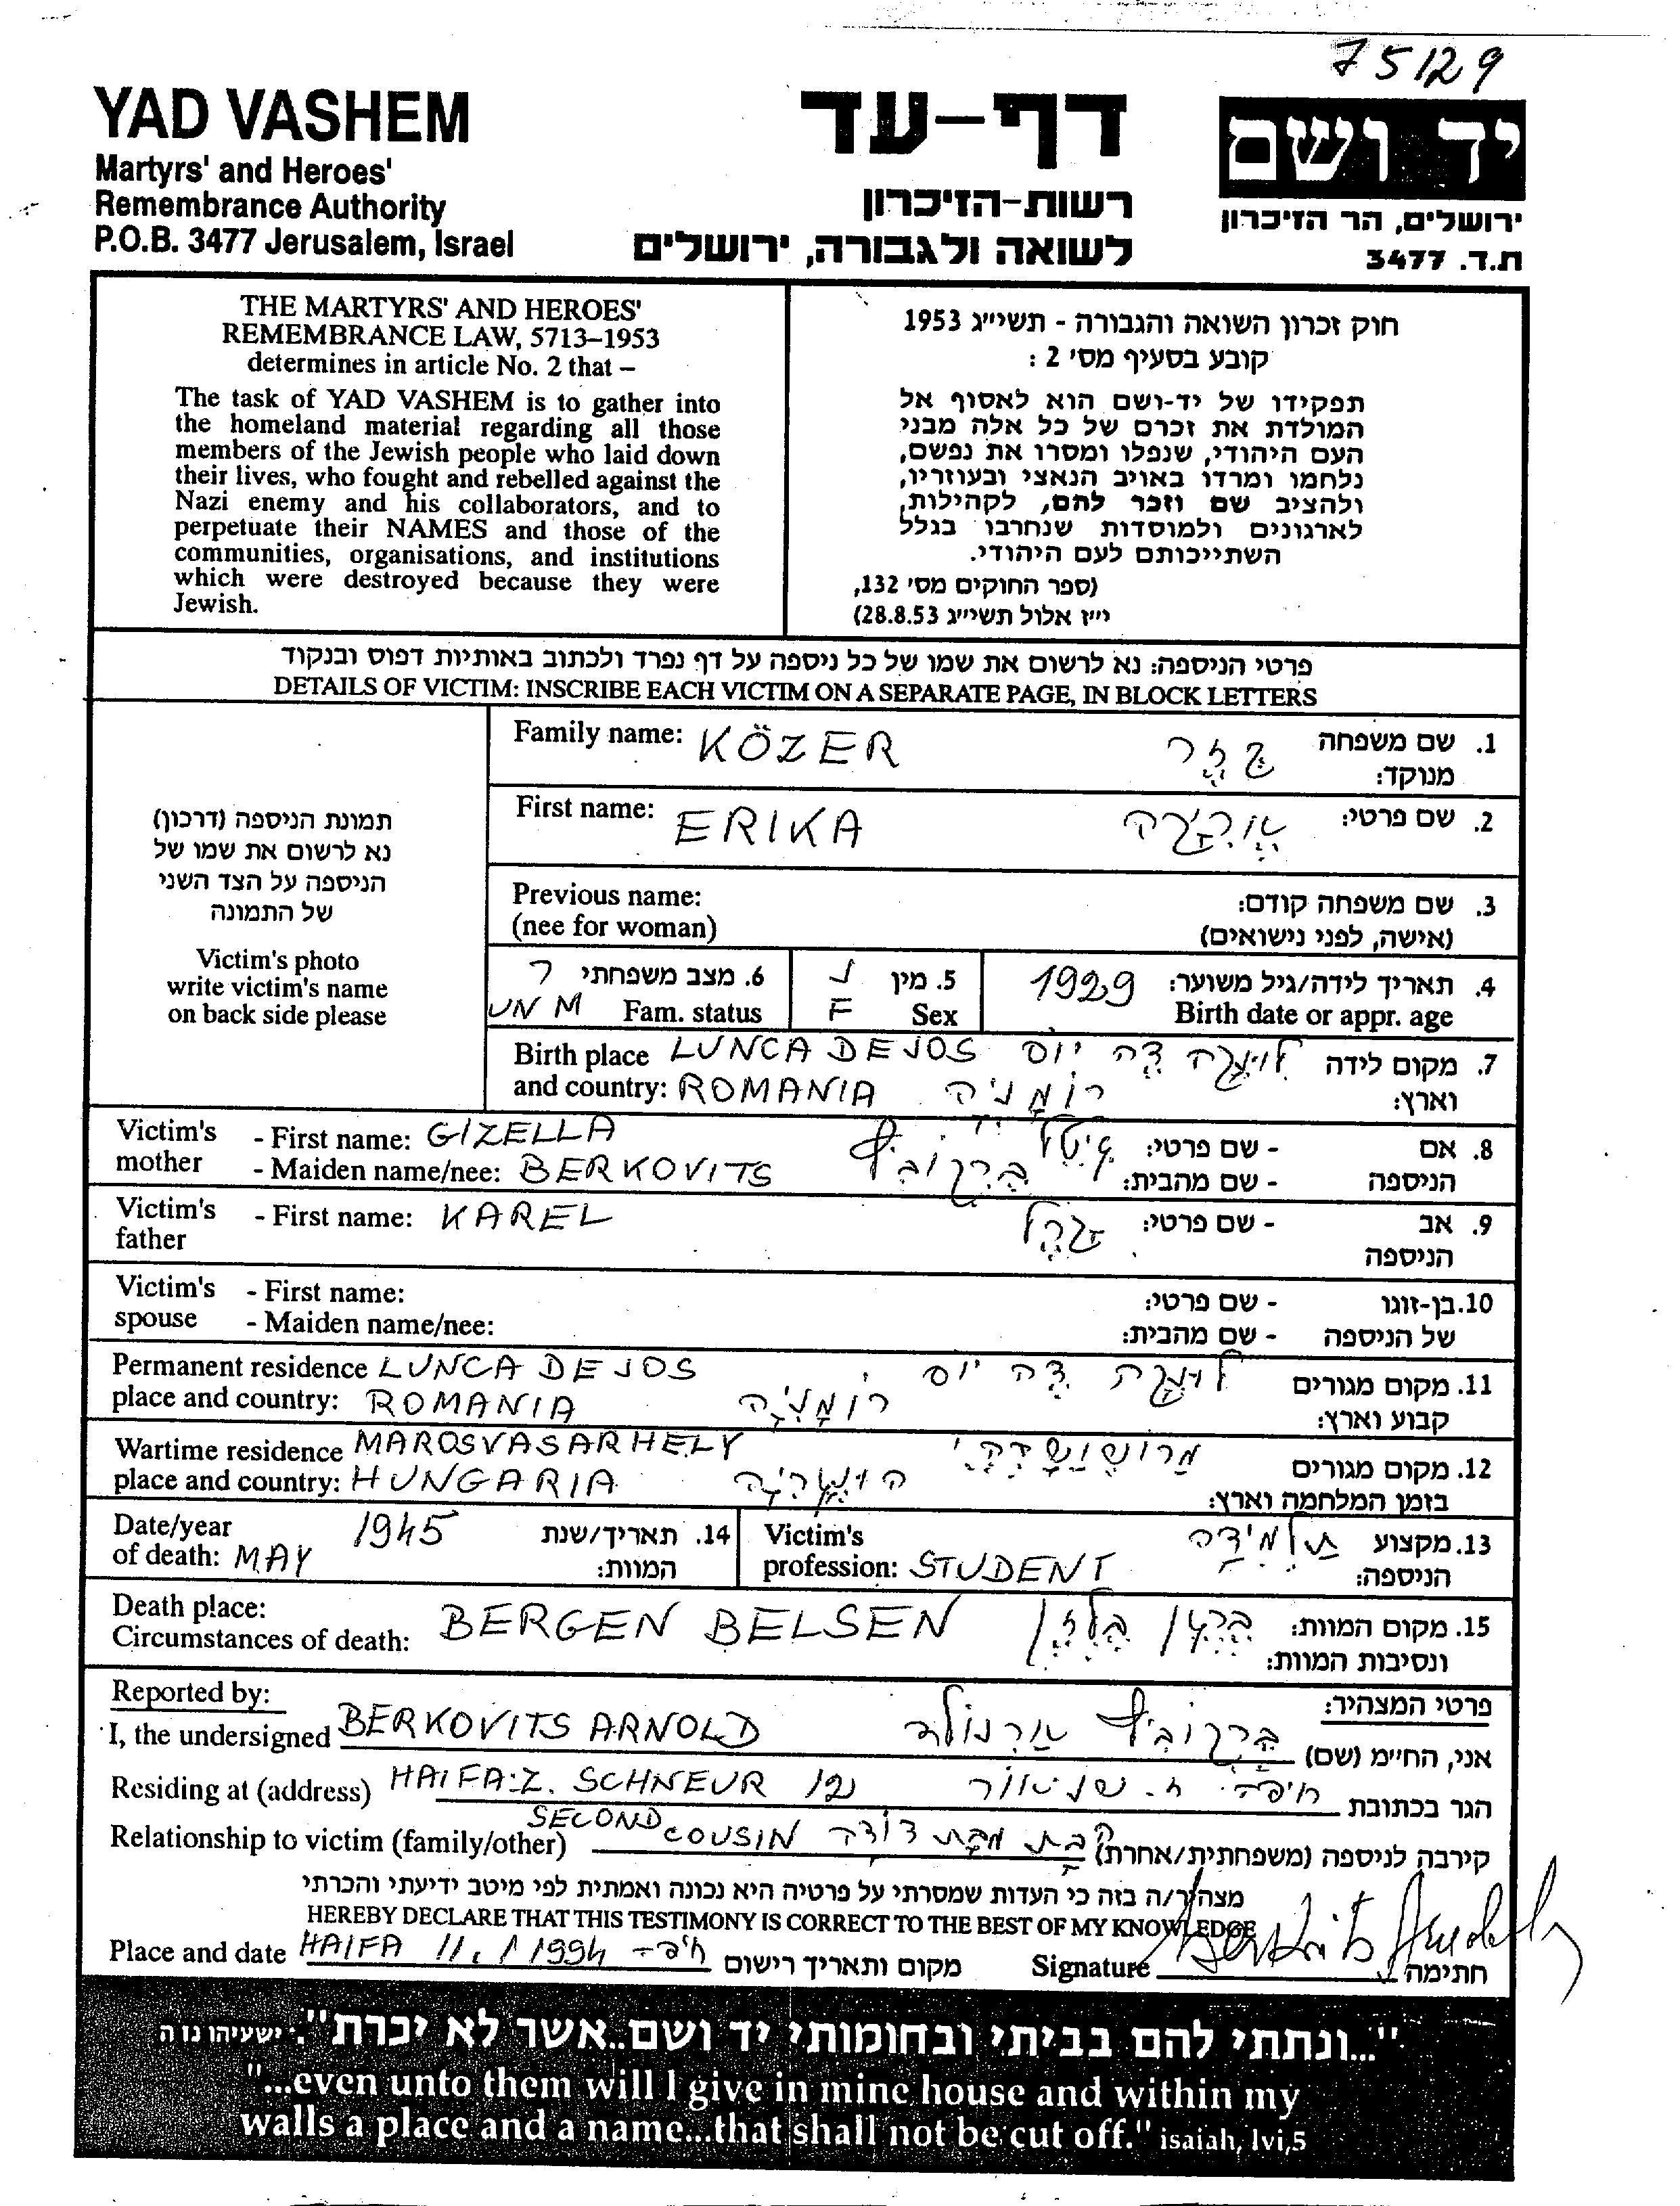 75129
YAD VASHEM
Martyrs' and Heroes'
Remembrance Authority
P.O.B. 3477 Jerusalem, Israel
דף-עד
רשות-הזיכרון
לשואה ולגבורה, ירושלים
יד ושם
ירושלים, הר הזיכרון
ת.ד. 3477
THE MARTYRS' AND HEROES'
REMEMBRANCE LAW, 5713–1953
determines in article No. 2 that –
The task of YAD VASHEM is to gather into
the homeland material regarding all those
members of the Jewish people who laid down
their lives, who fought and rebelled against the
Nazi enemy and his collaborators, and to
perpetuate their NAMES and those of the
communities, organisations, and institutions
which were destroyed because they were
Jewish.
חוק זכרון השואה והגבורה - תשי״ג 1953
קובע בסעיף מס׳ 2 :
תפקידו של יד-ושם הוא לאסוף אל
המולדת את זכרם של כל אלה מבני
העם היהודי, שנפלו ומסרו את נפשם,
נלחמו ומרדו באויב הנאצי ובעוזריו,
ולהציב שם וזכר להם, לקהילות,
לארגונים ולמוסדות שנחרבו בגלל
השתייכותם לעם היהודי.
(ספר החוקים מס׳ 132,
י״ז אלול תשי״ג 28.8.53)
פרטי הניספה: נא לרשום את שמו של כל ניספה על דף נפרד ולכתוב באותיות דפוס ובנקוד
DETAILS OF VICTIM: INSCRIBE EACH VICTIM ON A SEPARATE PAGE, IN BLOCK LETTERS
תמונת הניספה (דרכון)
נא לרשום את שמו של
הניספה על הצד השני
של התמונה
Victim's photo
write victim's name
on back side please
Family name: KÖZER 1. שם משפחה
מנוקד:
First name: ERIKA אריקה 2. שם פרטי:
Previous name: 3. שם משפחה קודם:
(nee for woman) (אישה, לפני נישואים)
4. תאריך לידה/גיל משוער: 1929 5. מין נ 6. מצב משפחתי ר
Birth date or appr. age Sex F Fam. status UN M
Birth place LUNCA DE JOS לונקה דה יוס 7. מקום לידה
and country: ROMANIA רומניה וארץ:
Victim's - First name: GIZELLA - שם פרטי: 8. אם
mother - Maiden name/nee: BERKOVITS ברקוביץ - שם מהבית: הניספה
Victim's - First name: KAREL קרל - שם פרטי: 9. אב
father הניספה
Victim's - First name: - שם פרטי: 10. בן-זוגו
spouse - Maiden name/nee: - שם מהבית: של הניספה
Permanent residence LUNCA DE JOS לונקה דה יוס 11. מקום מגורים
place and country: ROMANIA רומניה קבוע וארץ:
Wartime residence MAROSVASARHELY 12. מקום מגורים
place and country: HUNGARIA הונגריה בזמן המלחמה וארץ:
Date/year 1945 14. תאריך/שנת
of death: MAY המוות:
Victim's תלמידה 13. מקצוע
profession: STUDENT הניספה:
Death place: BERGEN BELSEN ברגן בלזן 15. מקום המוות:
Circumstances of death: ונסיבות המוות:
Reported by: פרטי המצהיר:
I, the undersigned BERKOVITS ARNOLD ברקוביץ ארנולד אני, החיימ (שם)
Residing at (address) HAIFA: Z. SCHNEUR 12 חיפה ז. שניאור הגר בכתובת
Relationship to victim (family/other) SECOND COUSIN קירבה לניספה (משפחתית/אחרת)
מצהיר/ה בזה כי העדות שמסרתי על פרטיה היא נכונה ואמתית לפי מיטב ידיעתי והכרתי
HEREBY DECLARE THAT THIS TESTIMONY IS CORRECT TO THE BEST OF MY KNOWLEDGE
Place and date HAIFA 11.1 1994 מקום ותאריך רישום Signature Berkovits Arnold חתימה
"...ונתתי להם בביתי ובחומותי יד ושם..אשר לא יכרת". ישעיהו נו ה
"...even unto them will I give in mine house and within my
walls a place and a name...that shall not be cut off." isaiah, lvi,5